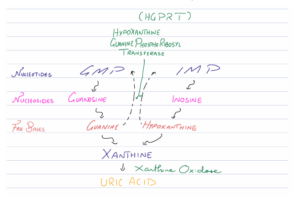 (HGPRT)
HYPOXANTHINE
GUANINE PHOSPHORIBOSYL
TRANSFERASE
NUCLEOTIDES GMP IMP
NUCLEOSIDES GUANOSINE INOSINE
FREE BASES GUANINE HYPOXANTHINE
XANTHINE
Xanthine Oxidase
URIC ACID